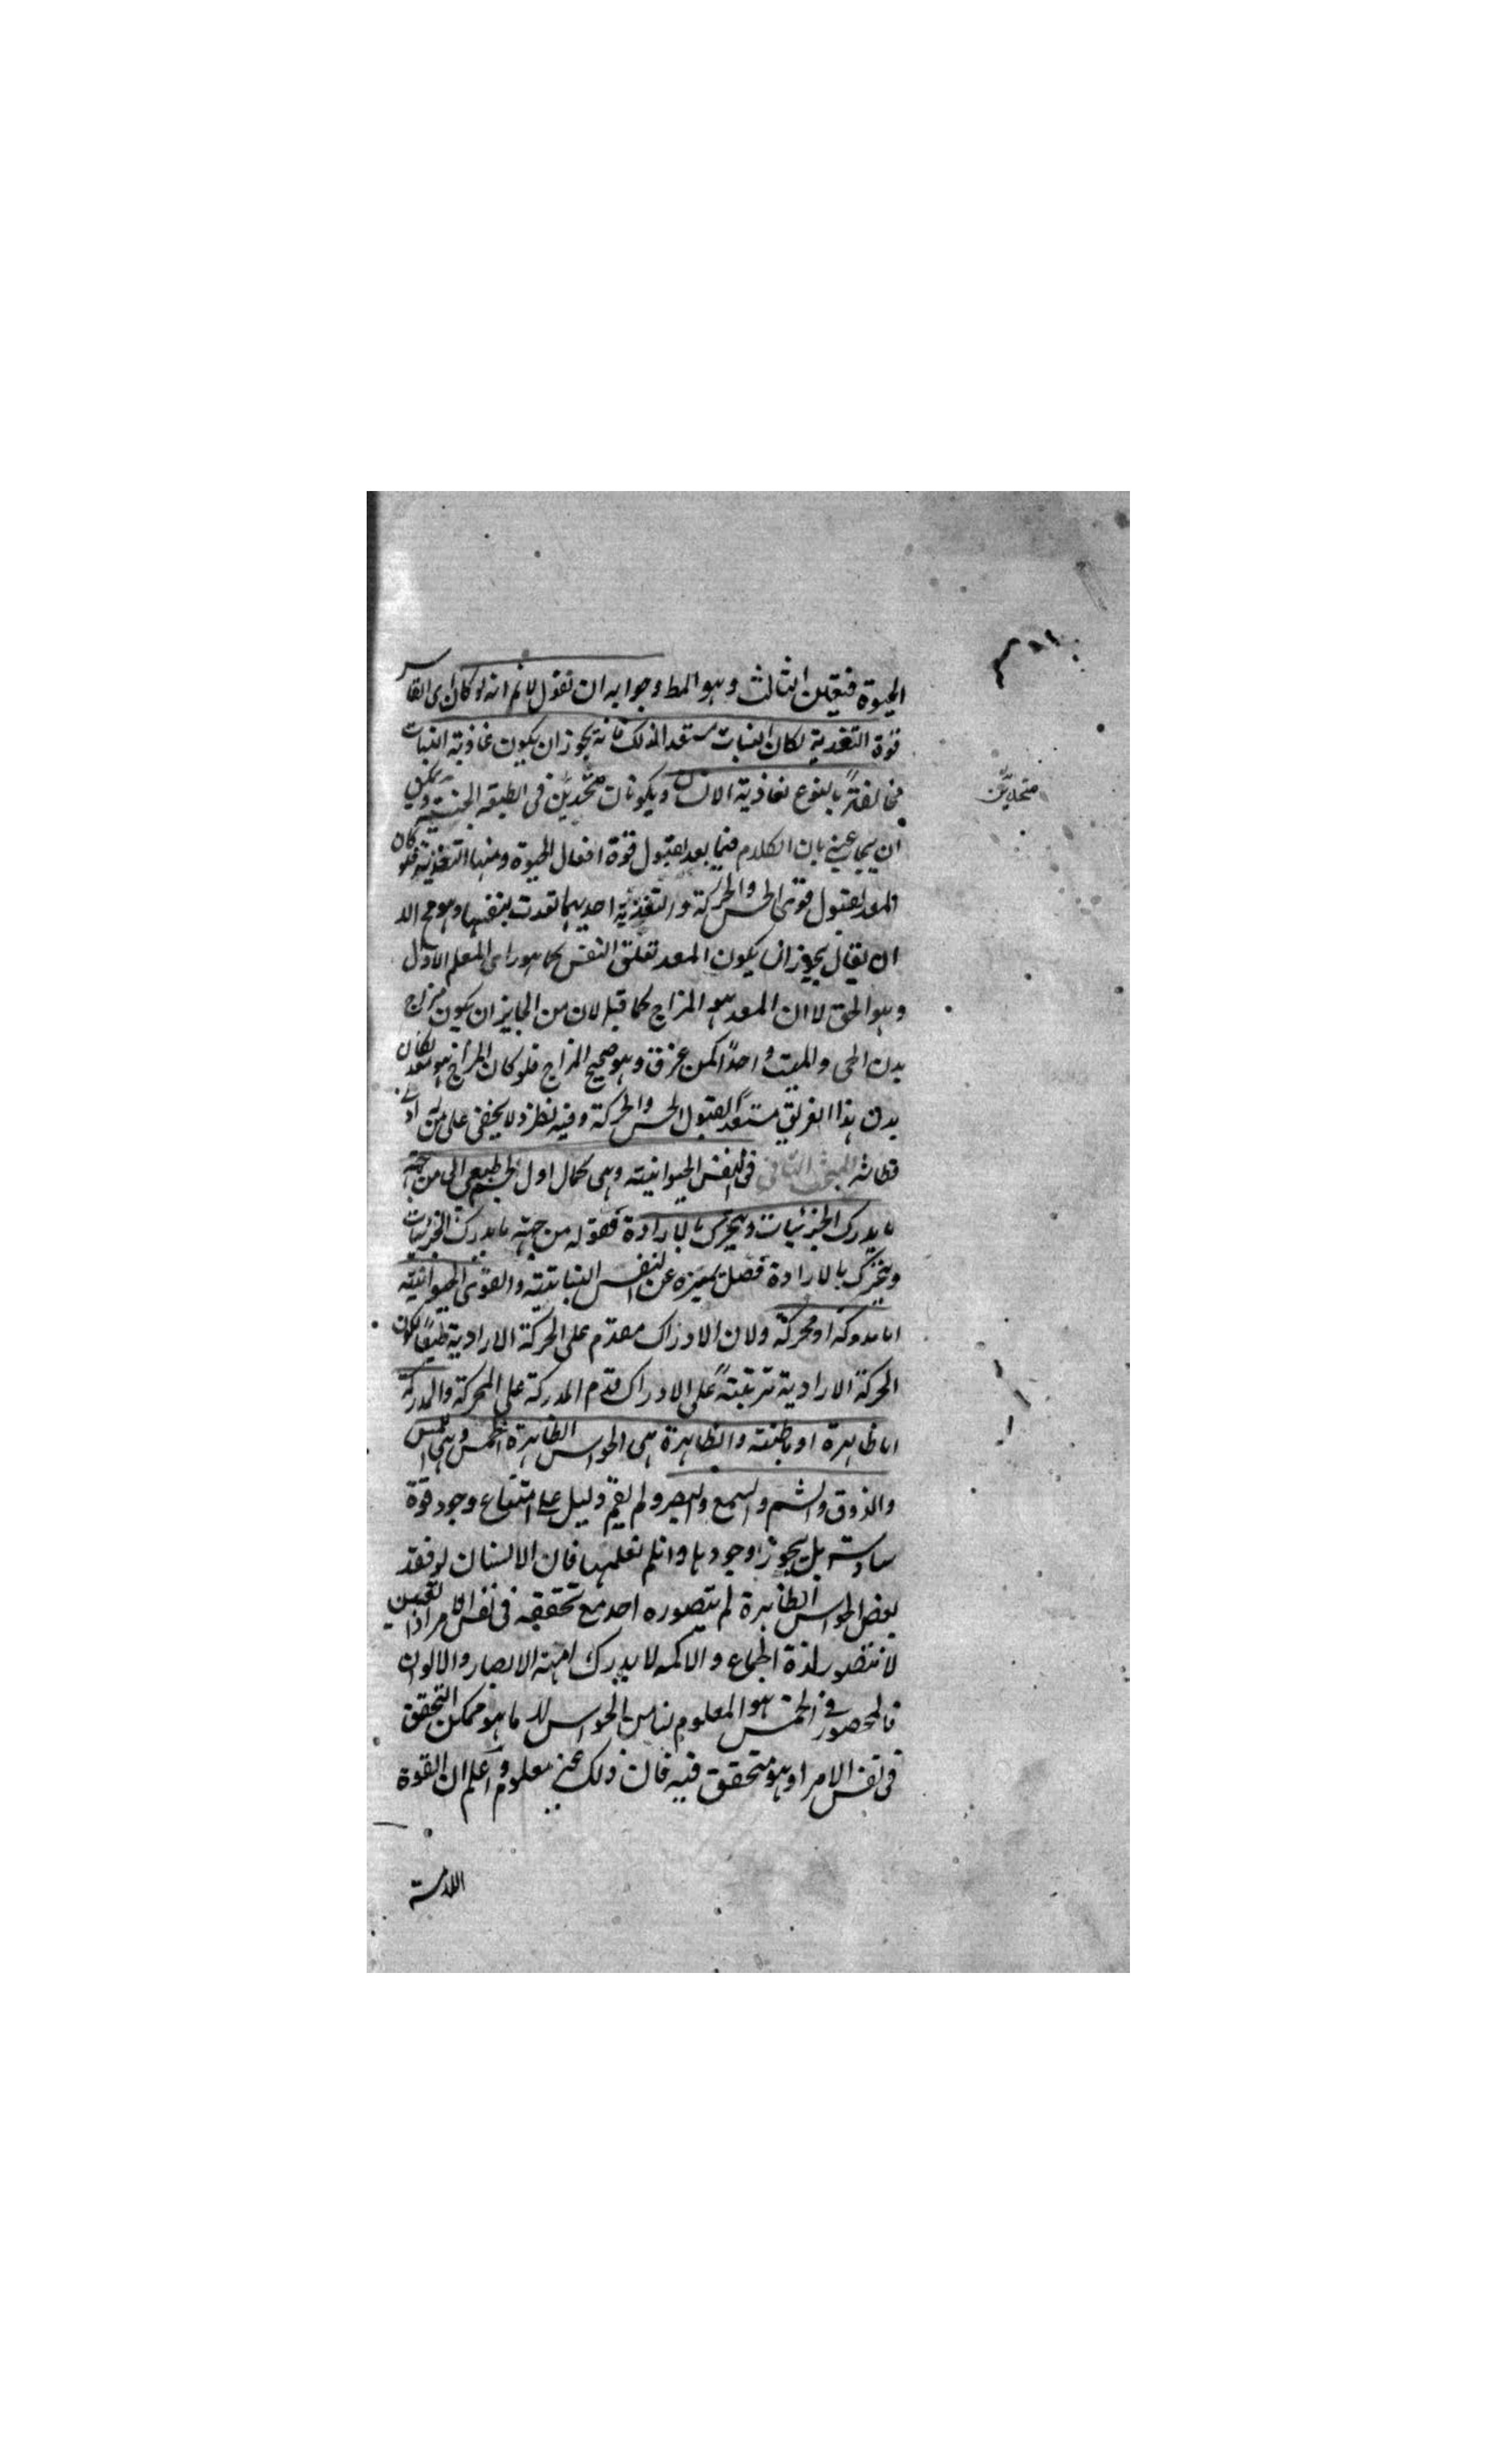 الحيوة فتعين الثالث وهو المط وجوابه ان نقول لانم انه لو كان
قوة التغدية لكان النبات مستعد الذلك فانه يجوز ان يكون غاذية النبات
مخالفةً بالنوع لغاذية الانسان ويكونان متحدين فى الطبيعة الجنسية ويمكن
متحدين
ان يجاب عنه بان الكلام فيما يعد لقبول قوة افعال الحيوة ومنها التغذية فلو كان
المعد لقبول قوتى الحس والحركة والتغذية احديهما تعدت بنفسها
ان يقال يجوز ان يكون المعد تعلق النفس كما هو راى المعلم الاول
وهو الحق لا ان المعد هو المزاج كما قيل لان من الجايز ان يكون مزاج
بدن الحى والميت واحدًا كمن غرق وهو صحيح المزاج فلو كان المزاج هو المعد لكان
بدن هذا الغريق مستعدًا لقبول الحس والحركة وفيه نظر لا يخفى على من له ادنى
فطانة المبحث الثانى فى النفس الحيوانية وهى كمال اول لجسم طبيعى الى من جهة
ما يدرك الجزئيات ويتحرك بالارادة فقوله من جهة ما يدرك الجزئيات
ويتحرك بالارادة فصل يميزه عن النفس النباتية والقوى الحيوانية
اما مدركة او محركة ولان الادراك مقدم على الحركة الارادية طبعًا لكون
الحركة الارادية مترتبةً على الادراك قدم المدركة على المحركة والمدركة
اما ظاهرة او باطنة والظاهرة هى الحواس الظاهرة الخمس وهى اللمس
والذوق والشم والسمع والبصر ولم يقم دليل على امتناع وجود قوة
سادسة بل يجوز وجودها وانلم نعلمها فان الانسان لو فقد
بعض الحواس الظاهرة لم يتصوره احد مع تحققه فى نفس الامر اذ العنين
لا يتصور لذة الجماع والاكمه لا يدرك لمية الابصار والالوان
فالمحصور فى الخمس هو المعلوم لنا من الحواس لا ما هو ممكن التحقق
فى نفس الامر او هو متحقق فيه فان ذلك غير معلوم واعلم ان القوة
اللامسة